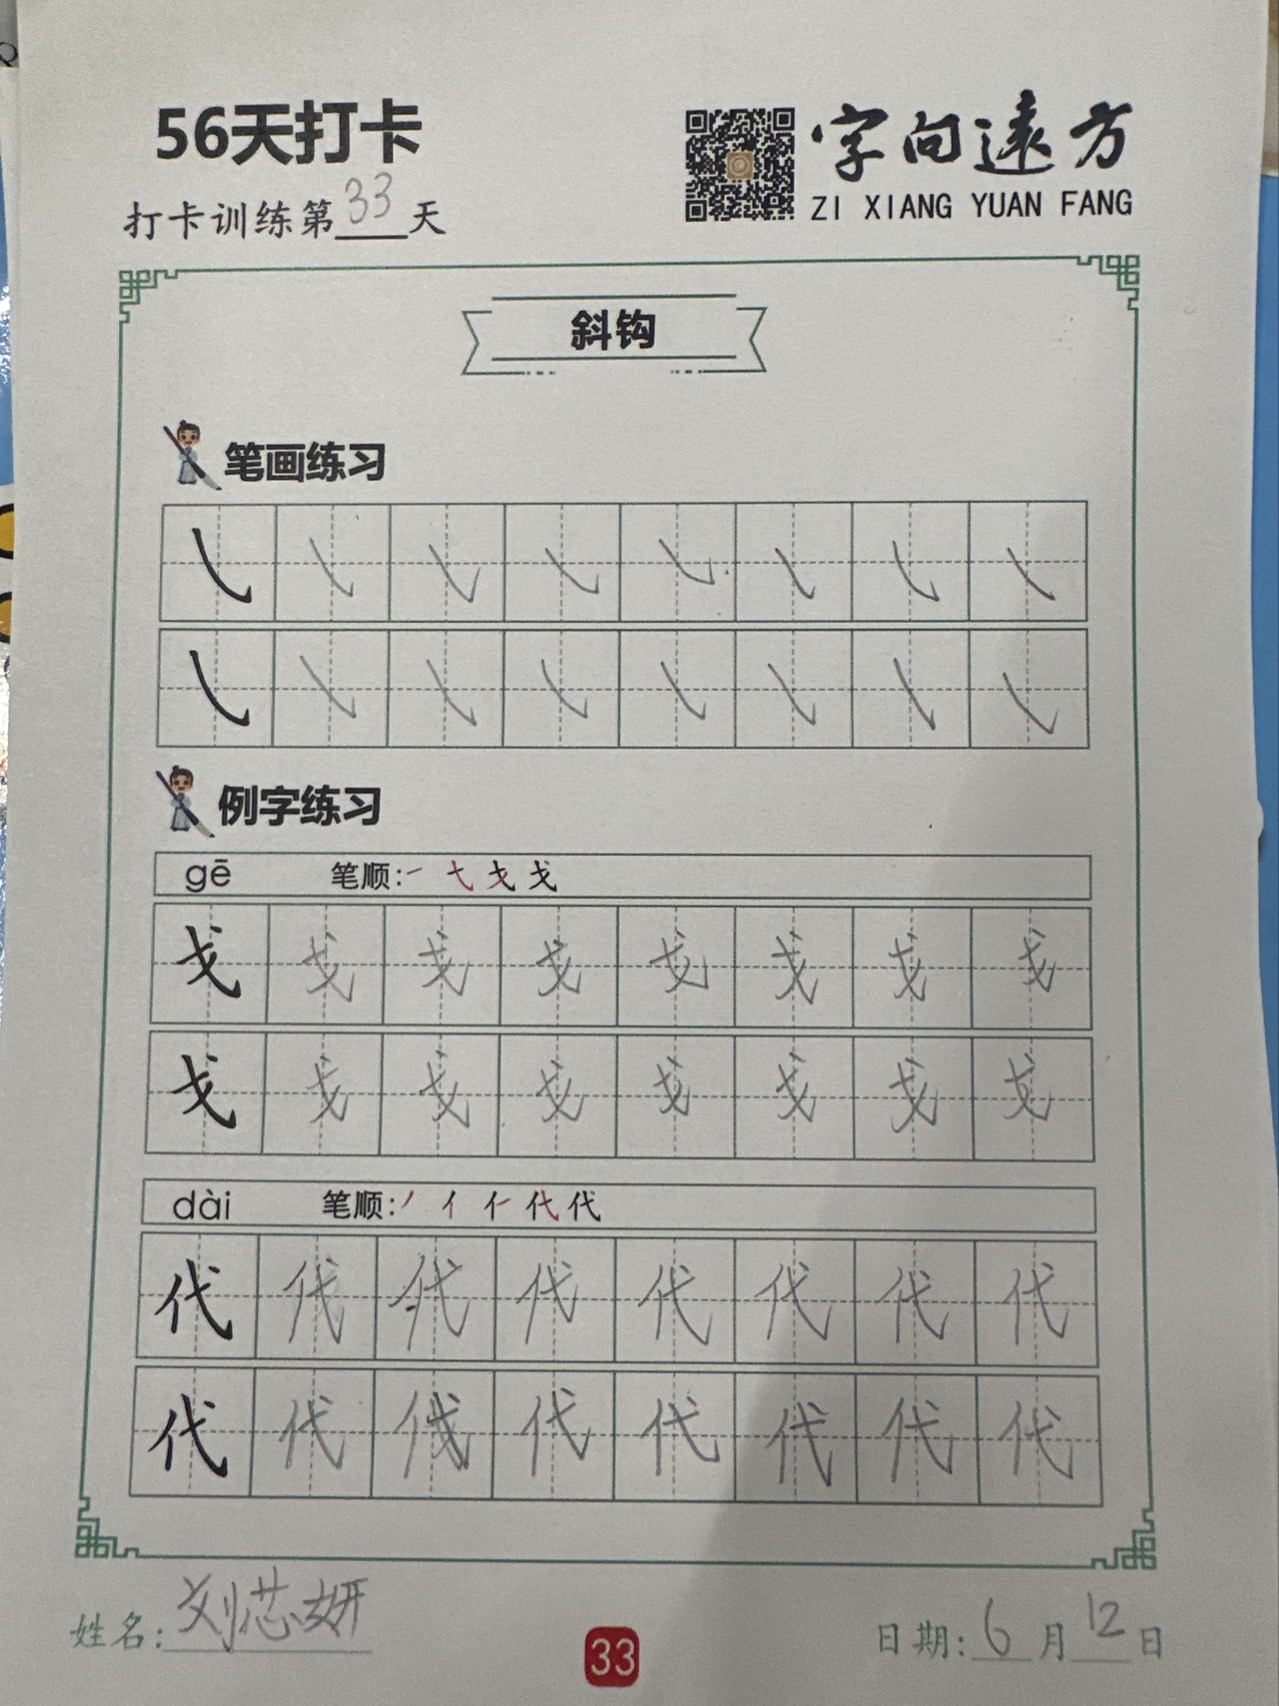 56天打卡
字向远方
ZI XIANG YUAN FANG
打卡训练第33天
斜钩
笔画练习
㇂ ㇂ ㇂ ㇂ ㇂ ㇂ ㇂ ㇂
㇂ ㇂ ㇂ ㇂ ㇂ ㇂ ㇂ ㇂
例字练习
gē 笔顺: 一 弋 戈 戈
戈 戈 戈 戈 戈 戈 戈 戈
戈 戈 戈 戈 戈 戈 戈 戈
dài 笔顺: 丿 亻 仁 代 代
代 代 代 代 代 代 代 代
代 代 代 代 代 代 代 代
姓名: 刘芯妍
33
日期: 6月12日